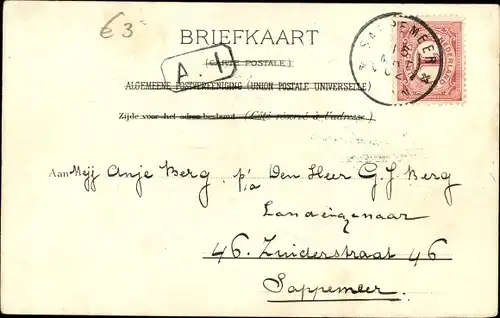 € 3
BRIEFKAART
(CARTE POSTALE)
A. 1
ALGEMEENE POSTVEREENIGING (UNION POSTALE UNIVERSELLE)
Zijde voor het adres bestemd (Côté réservé à l'adresse)
SAPPEMEER
NEDERLAND
1
Aan Mejj Anje Berg p/a Den Heer G. J. Berg
Landeigenaar
46. Zuiderstraat 46
Sappemeer.